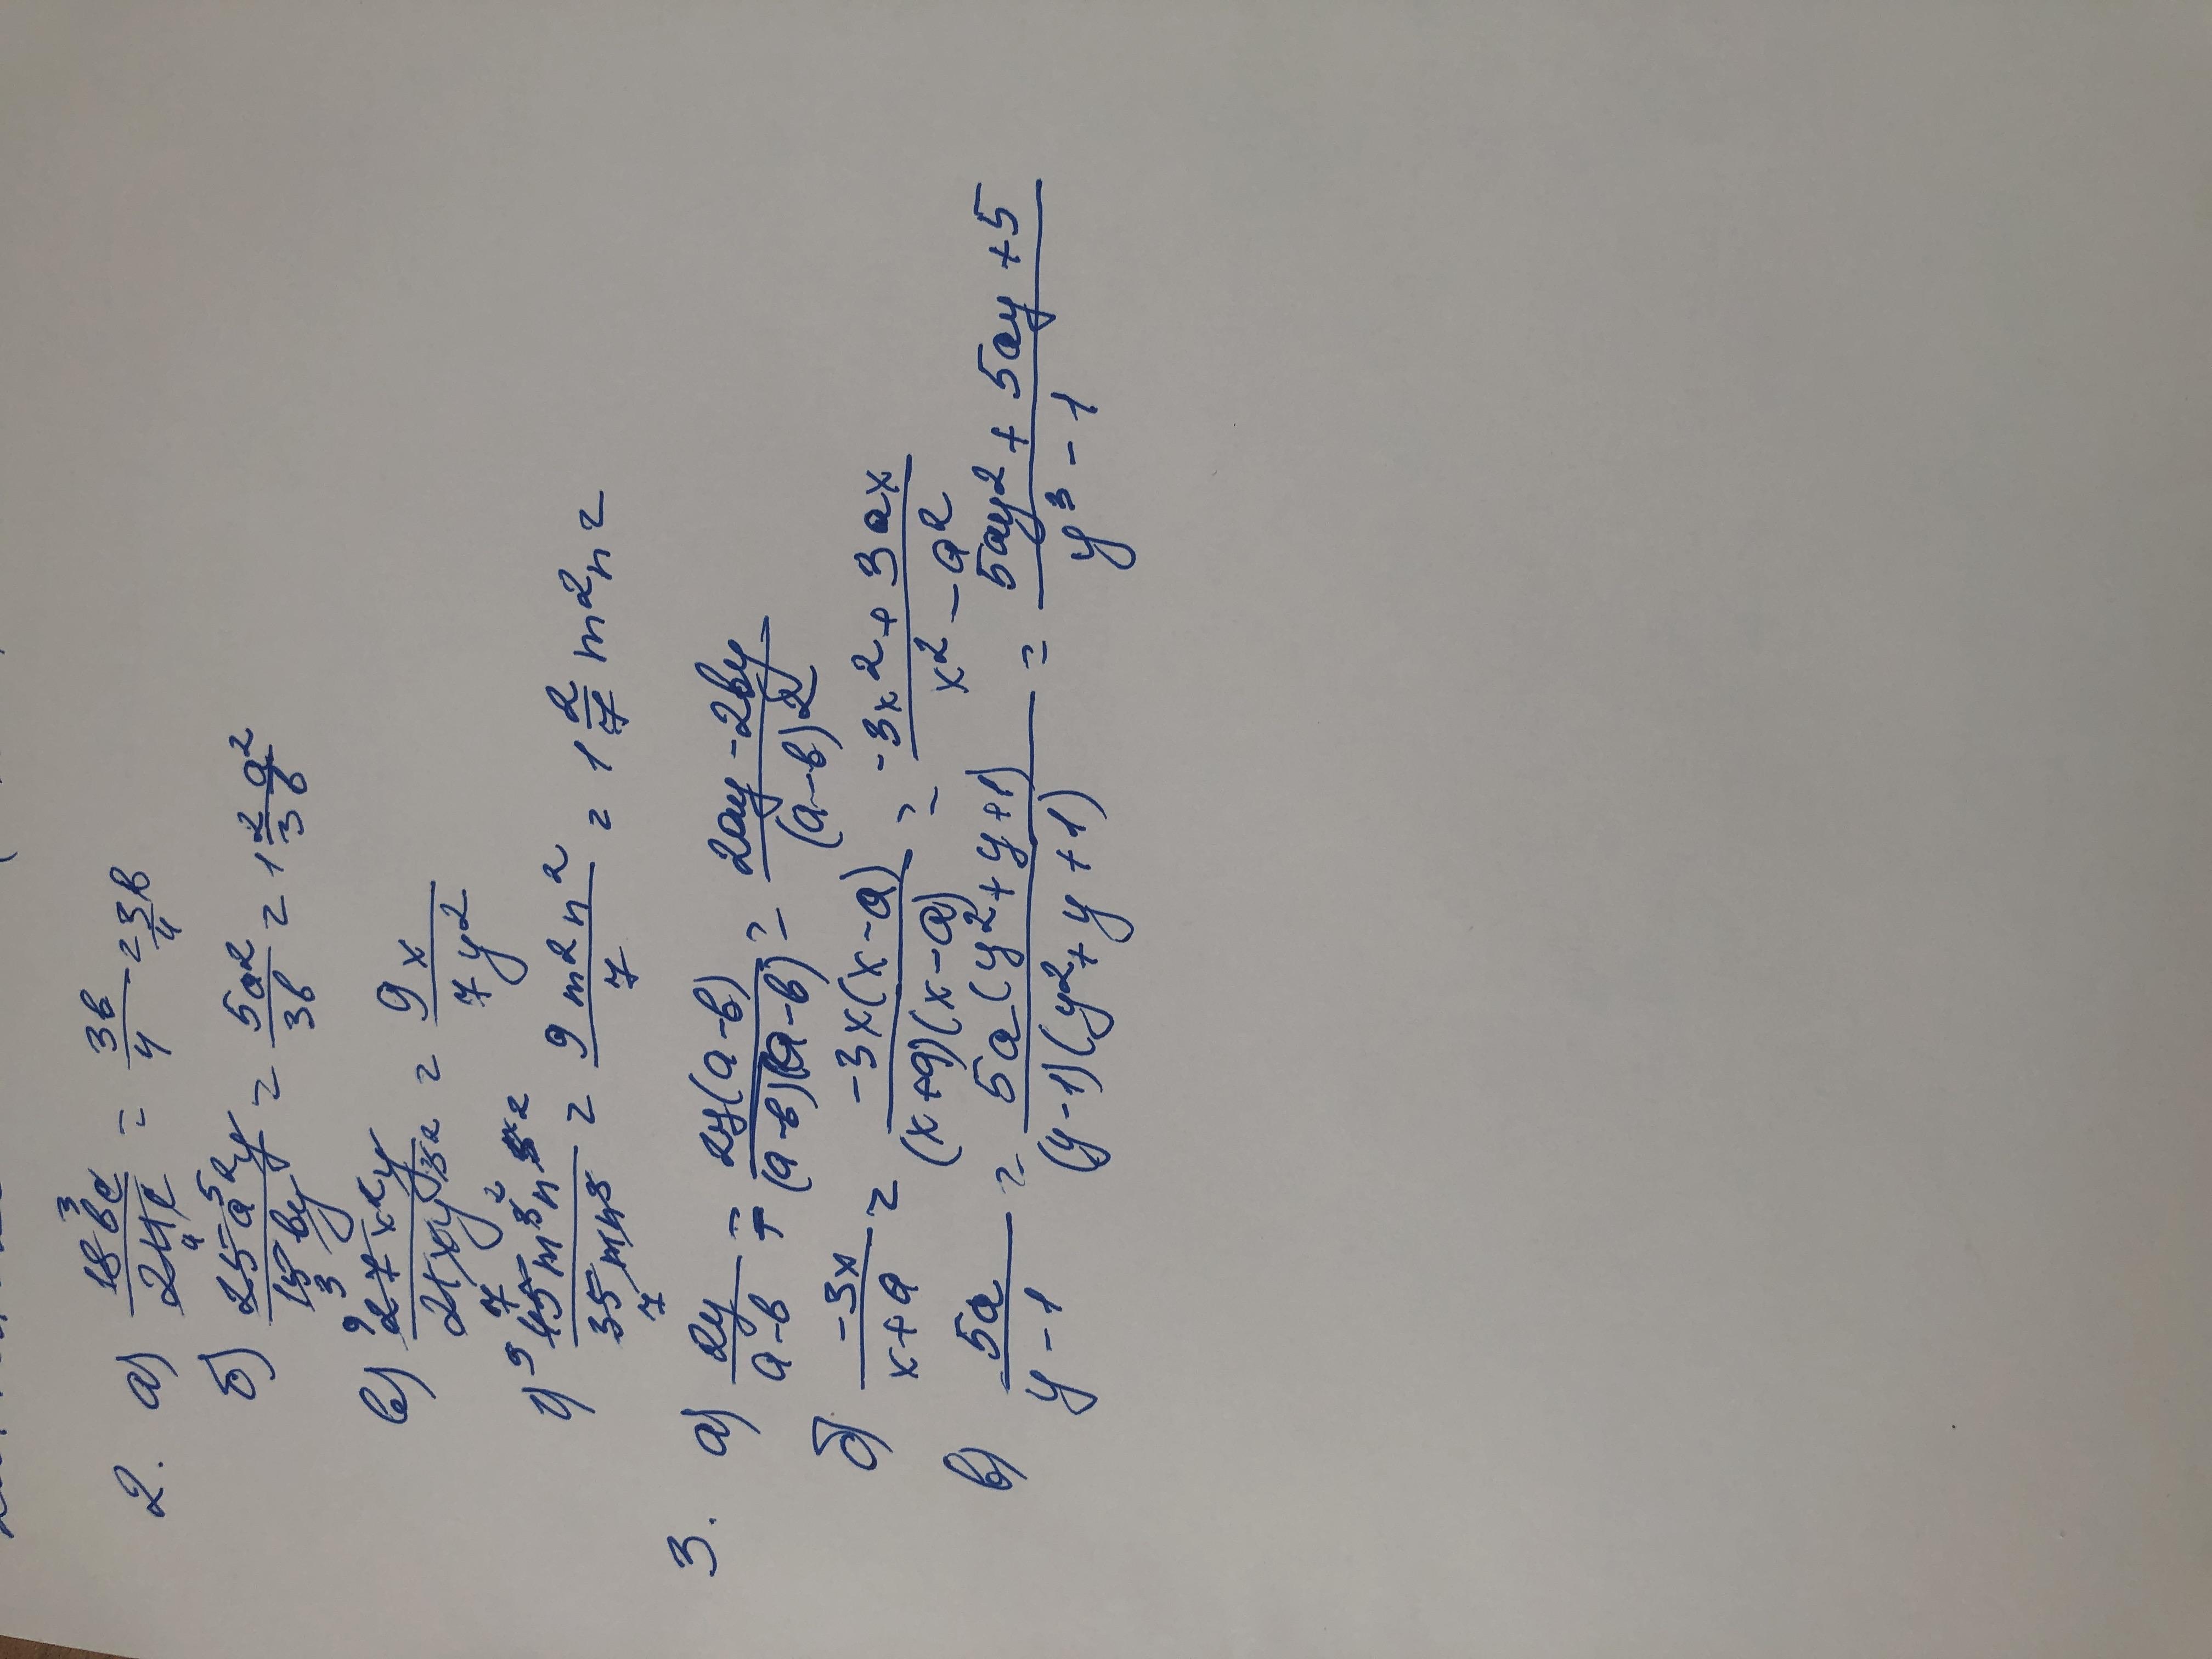 2. а) 18bc/24c = 3b/4 = 3/4 b
б) 25a²y/15by = 5a²/3b = 1 2/3 a²/b
в) 27x²y/21xy³ = 9x/7y²
г) 45m³n⁵/35mn³ = 9m²n²/7 = 1 2/7 m²n²
3. а) 2y/a-b = 2y(a-b)/(a-b)(a-b) = 2ay-2by/(a-b)²
б) -3x/x+a = -3x(x-a)/(x+a)(x-a) = -3x²+3ax/x²-a²
в) 5a/y-1 = 5a(y²+y+1)/(y-1)(y²+y+1) = 5ay²+5ay+5/y³-1